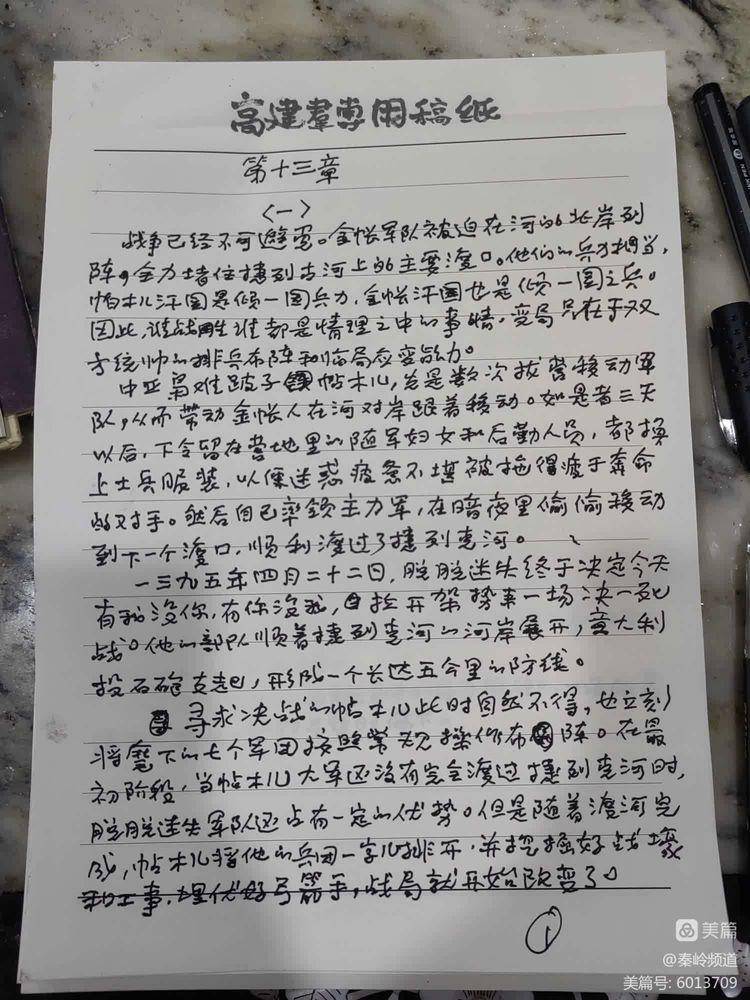 高建群专用稿纸
第十三章
〈一〉
战争已经不可避免。金帐军队被迫在河的北岸列
阵，全力堵住捷列克河上的主要渡口。他们的兵力相当，
帖木儿汗国是倾一国兵力，金帐汗国也是倾一国之兵。
因此，谁战胜谁都是情理之中的事情。变局只在于双
方统帅的排兵布阵和临局应变能力。
中亚枭雄跛子帖木儿，总是数次拔营移动军
队，从而带动金帐人在河对岸跟着移动。如是者三天
以后，下令留在营地里的随军妇女和后勤人员，都换
上士兵服装，以便迷惑疲惫不堪被拖得疲于奔命
的对手。然后自己率领主力军，在暗夜里偷偷移动
到下一个渡口，顺利渡过了捷列克河。
一三九五年四月二十二日，脱脱迷失终于决定今天
有我没你，有你没我，拉开架势来一场决一死
战。他的部队顺着捷列克河的河岸展开，意大利
投石砲支起，形成一个长达五公里的防线。
寻求决战的帖木儿此时自然不得，也立刻
将麾下的七个军团按照常规操作布阵。在最
初阶段，当帖木儿大军还没有完全渡过捷列克河时，
脱脱迷失军队还占有一定的优势。但是随着渡河完
成，帖木儿将他的兵团一字儿排开，并挖掘好战壕
和工事，埋伏好弓箭手，战局就开始改变了。
1
美篇
@秦岭频道
美篇号: 6013709